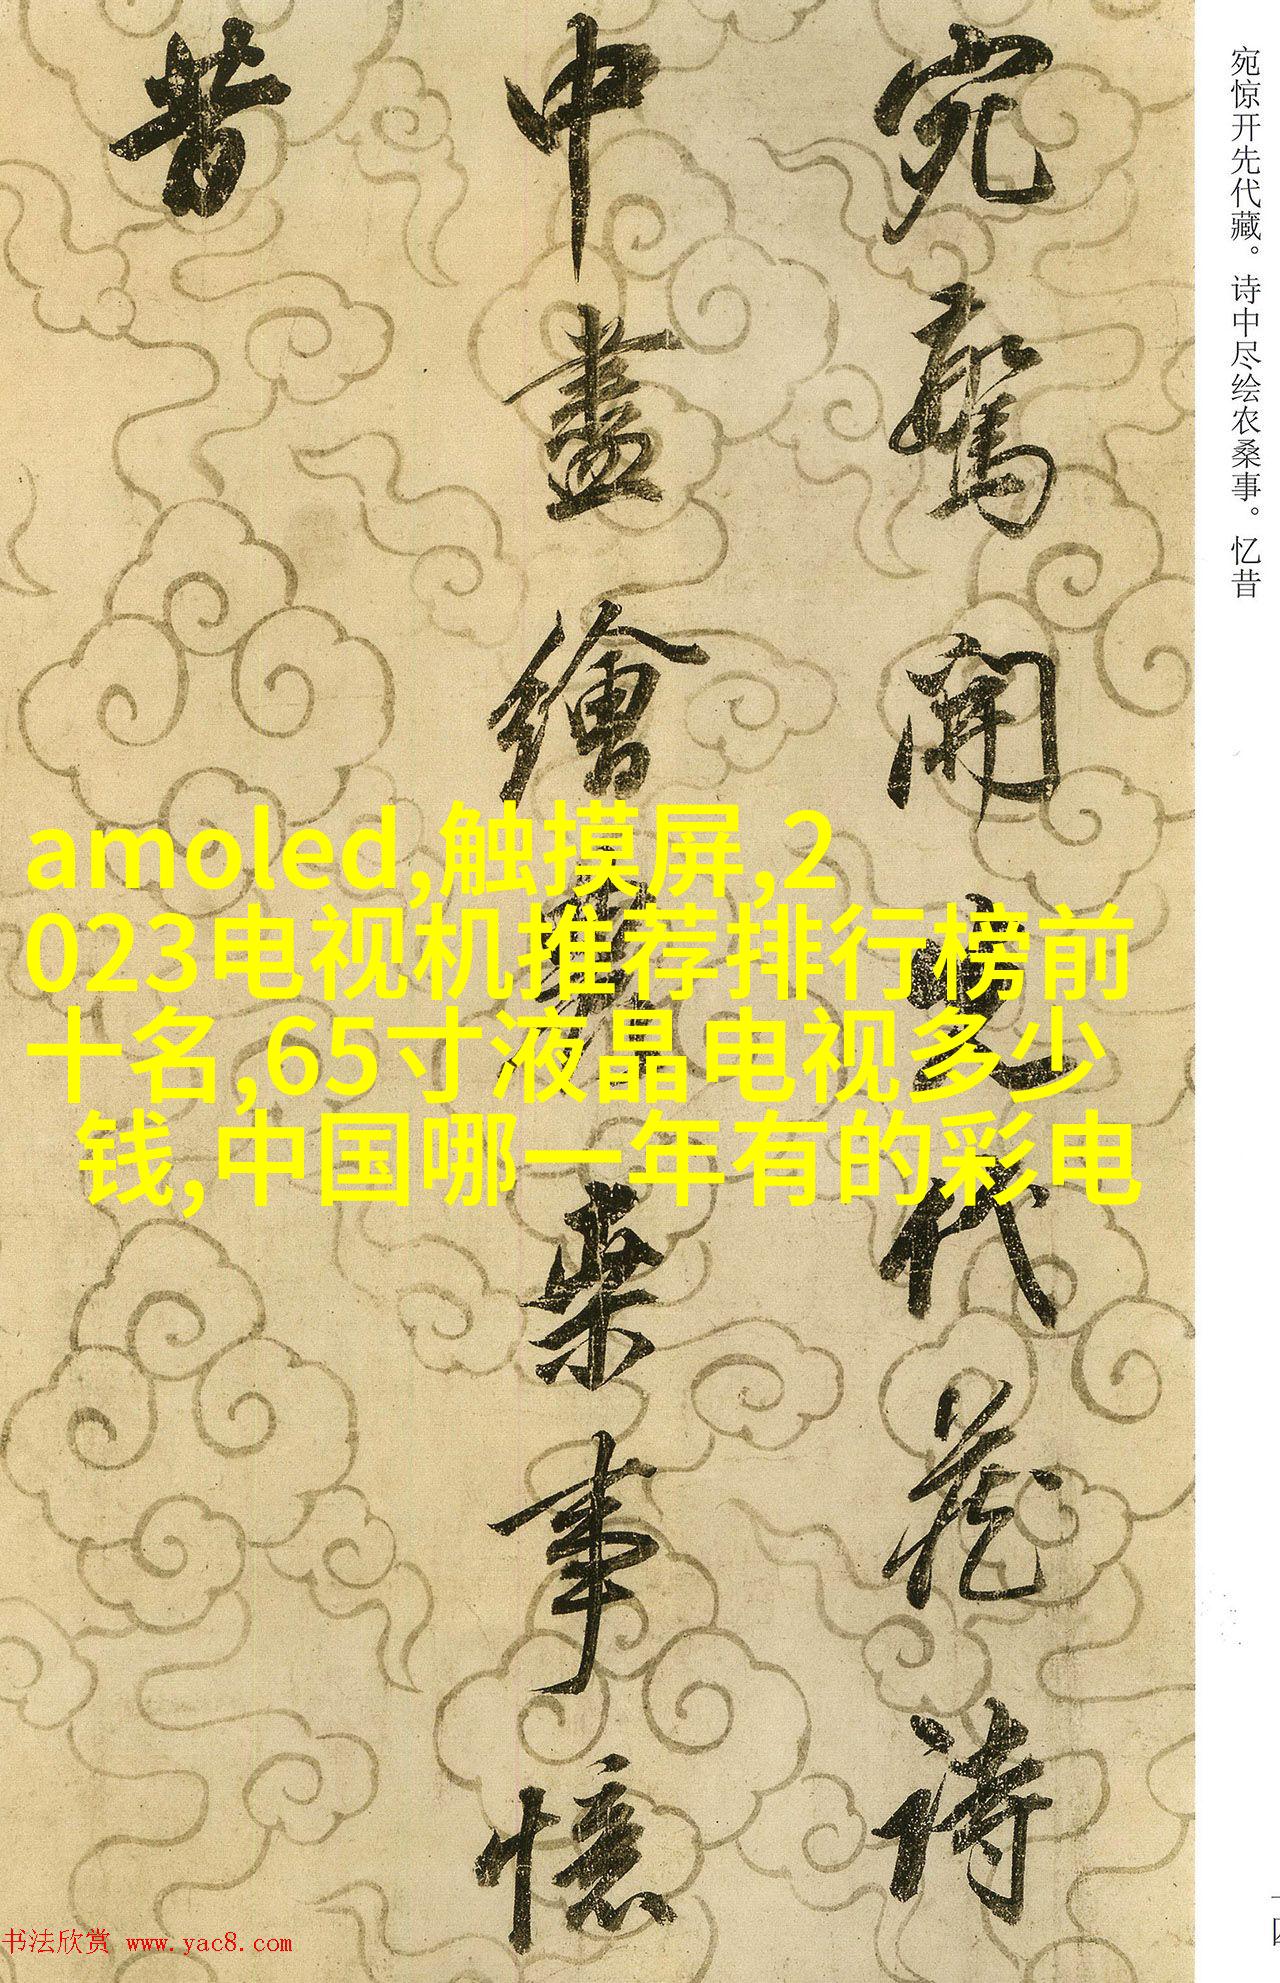 宛驚開先代藏詩
中盡繪農桒事憶
昔
宛惊开先代藏。诗中尽绘农桑事。忆昔
amoled,触摸屏,2
023电视机推荐排行榜前
十名,65寸液晶电视多少
钱,中国哪一年有的彩电
书法欣赏 www.yac8.com